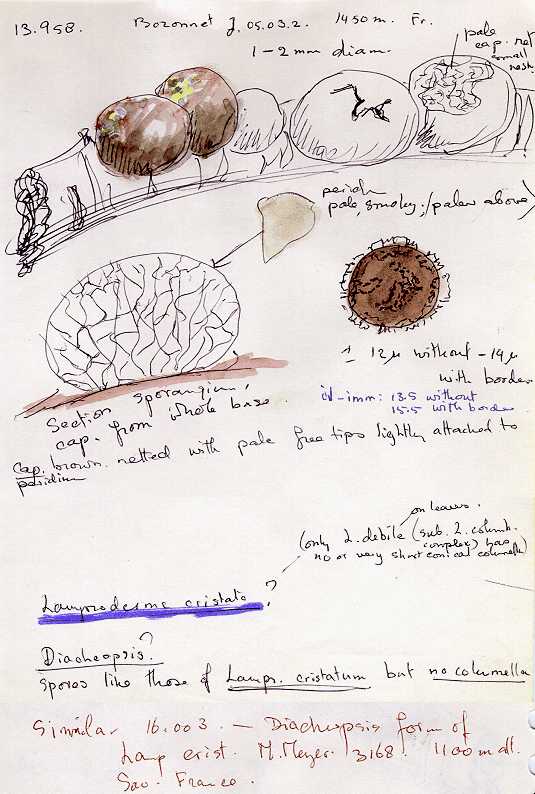 13.958. Bozonnet J. 05.03.2. 1450 m. Fr.
1-2 mm diam.
pale
cap. net
small
mesh.
perid.
pale, smoky; (paler above)
± 12 µ without - 14 µ
with border
id-imm: 13.5 without
15.5 with border
Section sporangium,
cap. from whole base.
Cap. brown. netted with pale free tips lightly attached to
peridium
on leaves.
(only L. debile (sub. L. columb.
complex) has
no or very short conical columella)
Lamproderma cristata ?
Diacheopsis?
spores like those of Lamp. cristatum but no columella
Similar 16.003. - Diacheopsis form of
Lamp crist. M. Meyer. 3168. 1100 m alt.
Sao. France.